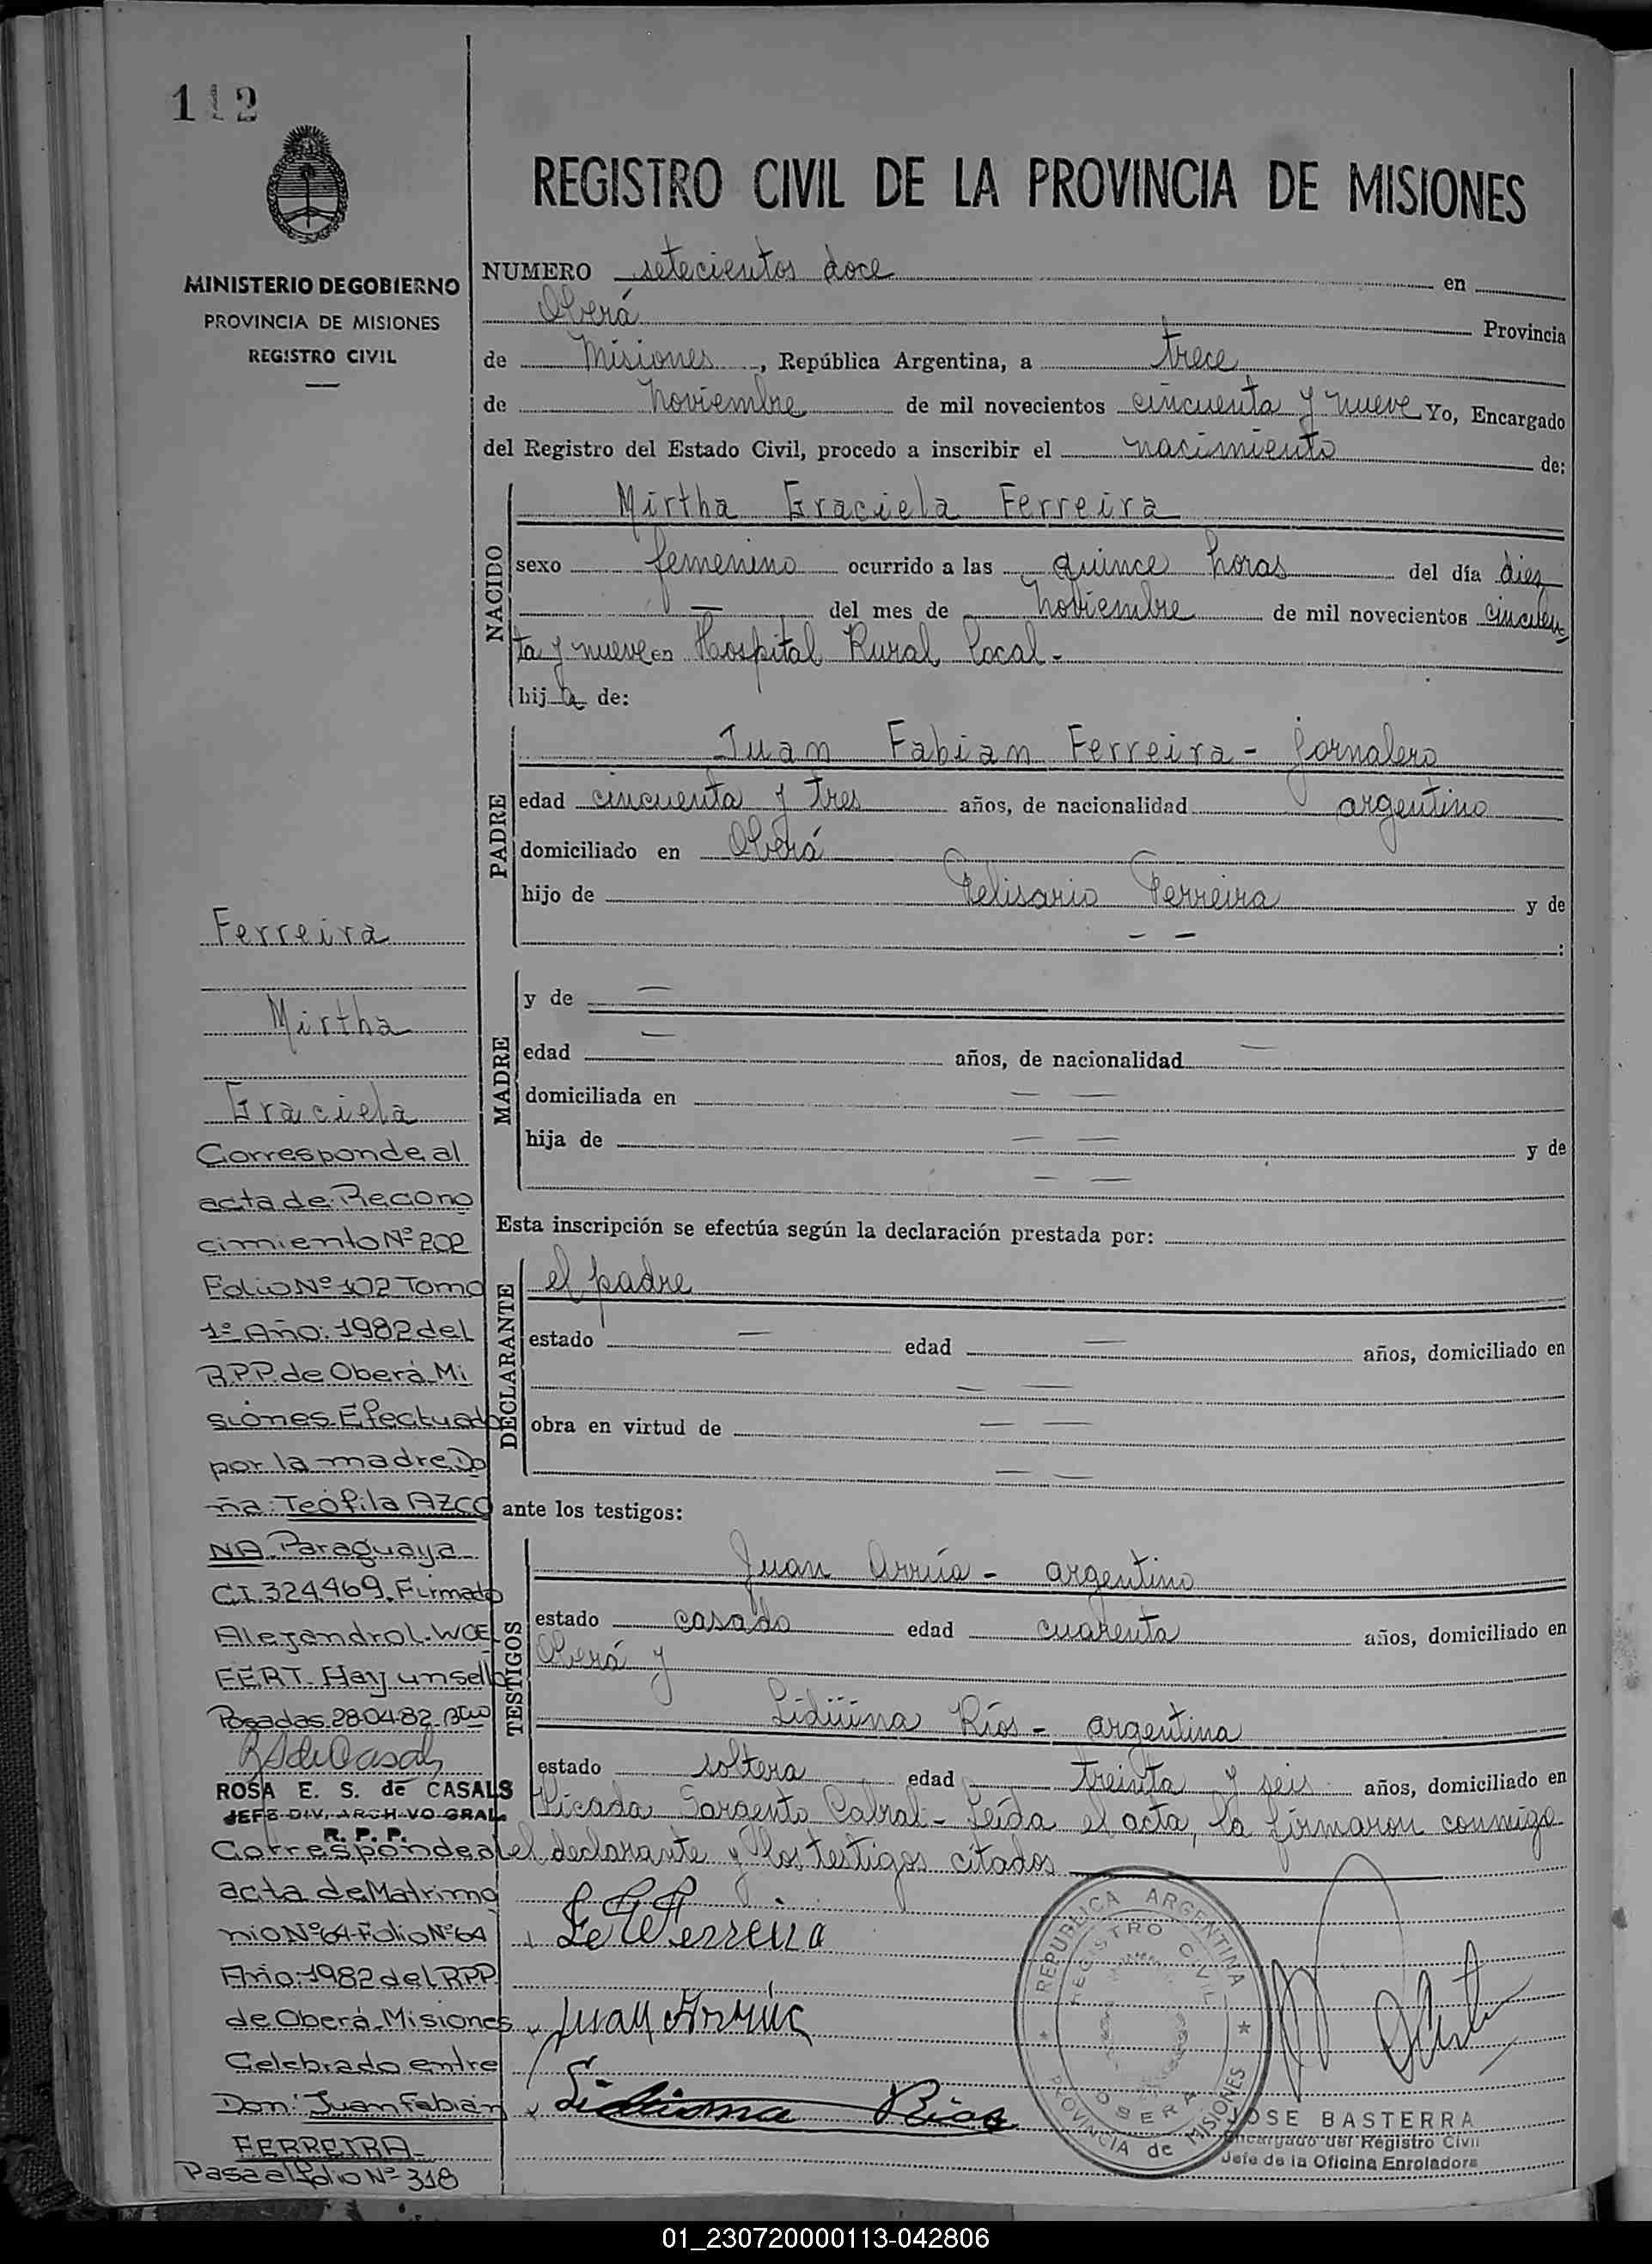 112
MINISTERIO DE GOBIERNO
PROVINCIA DE MISIONES
REGISTRO CIVIL
REGISTRO CIVIL DE LA PROVINCIA DE MISIONES
NUMERO setecientos doce en
Oberá Provincia
de Misiones, República Argentina, a trece
de Noviembre de mil novecientos cincuenta y nueve Yo, Encargado
del Registro del Estado Civil, procedo a inscribir el nacimiento de:
NACIDO
Mirtha Graciela Ferreira
sexo femenino ocurrido a las quince horas del día diez
— del mes de Noviembre de mil novecientos cincuen
ta y nueve en Hospital Rural local -
hija de:
PADRE
Juan Fabian Ferreira - jornalero
edad cincuenta y tres años, de nacionalidad argentino
domiciliado en Oberá
hijo de Pelisario Ferreira y de
— — :
MADRE
y de —
edad — años, de nacionalidad —
domiciliada en — —
hija de — — y de
— —
Esta inscripción se efectúa según la declaración prestada por:
DECLARANTE
el padre
estado — edad — años, domiciliado en
— —
obra en virtud de — —
— —
ante los testigos:
TESTIGOS
Juan Arrúa - argentino
estado casado edad cuarenta años, domiciliado en
Oberá y
Lidüina Ríos - argentina
estado soltera edad treinta y seis años, domiciliado en
Picada Sargento Cabral - Leída el acta, la firmaron conmigo
el declarante y los testigos citados
Ferreira
Juan Arrúa
Lidüina Rios
REPUBLICA ARGENTINA
REGISTRO CIVIL
OBERA
PROVINCIA de MISIONES
JOSE BASTERRA
Encargado del Registro Civil
Jefe de la Oficina Enroladora
Ferreira
Mirtha
Graciela
Corresponde al
acta de Recono
cimiento Nº 202
Folio Nº 102 Tomo
1º Año: 1982 del
R.P.P. de Oberá Mi
siones Efectuado
por la madre Do
ña: Teófila AZCO
NA Paraguaya
C.I. 324.469. Firmado
Alejandro L. WOE
FERT. Hay un sello
Posadas 28-04-82
ROSA E. S. de CASALS
JEFE DIV. ARCHIVO GRAL.
R. P. P.
Corresponde al
acta de Matrimo
nio Nº 64 Folio Nº 64
Año: 1982 del R.P.P.
de Oberá Misiones
Celebrado entre
Don: Juan Fabián
FERREIRA
Pasa al folio Nº 318
01_230720000113-042806